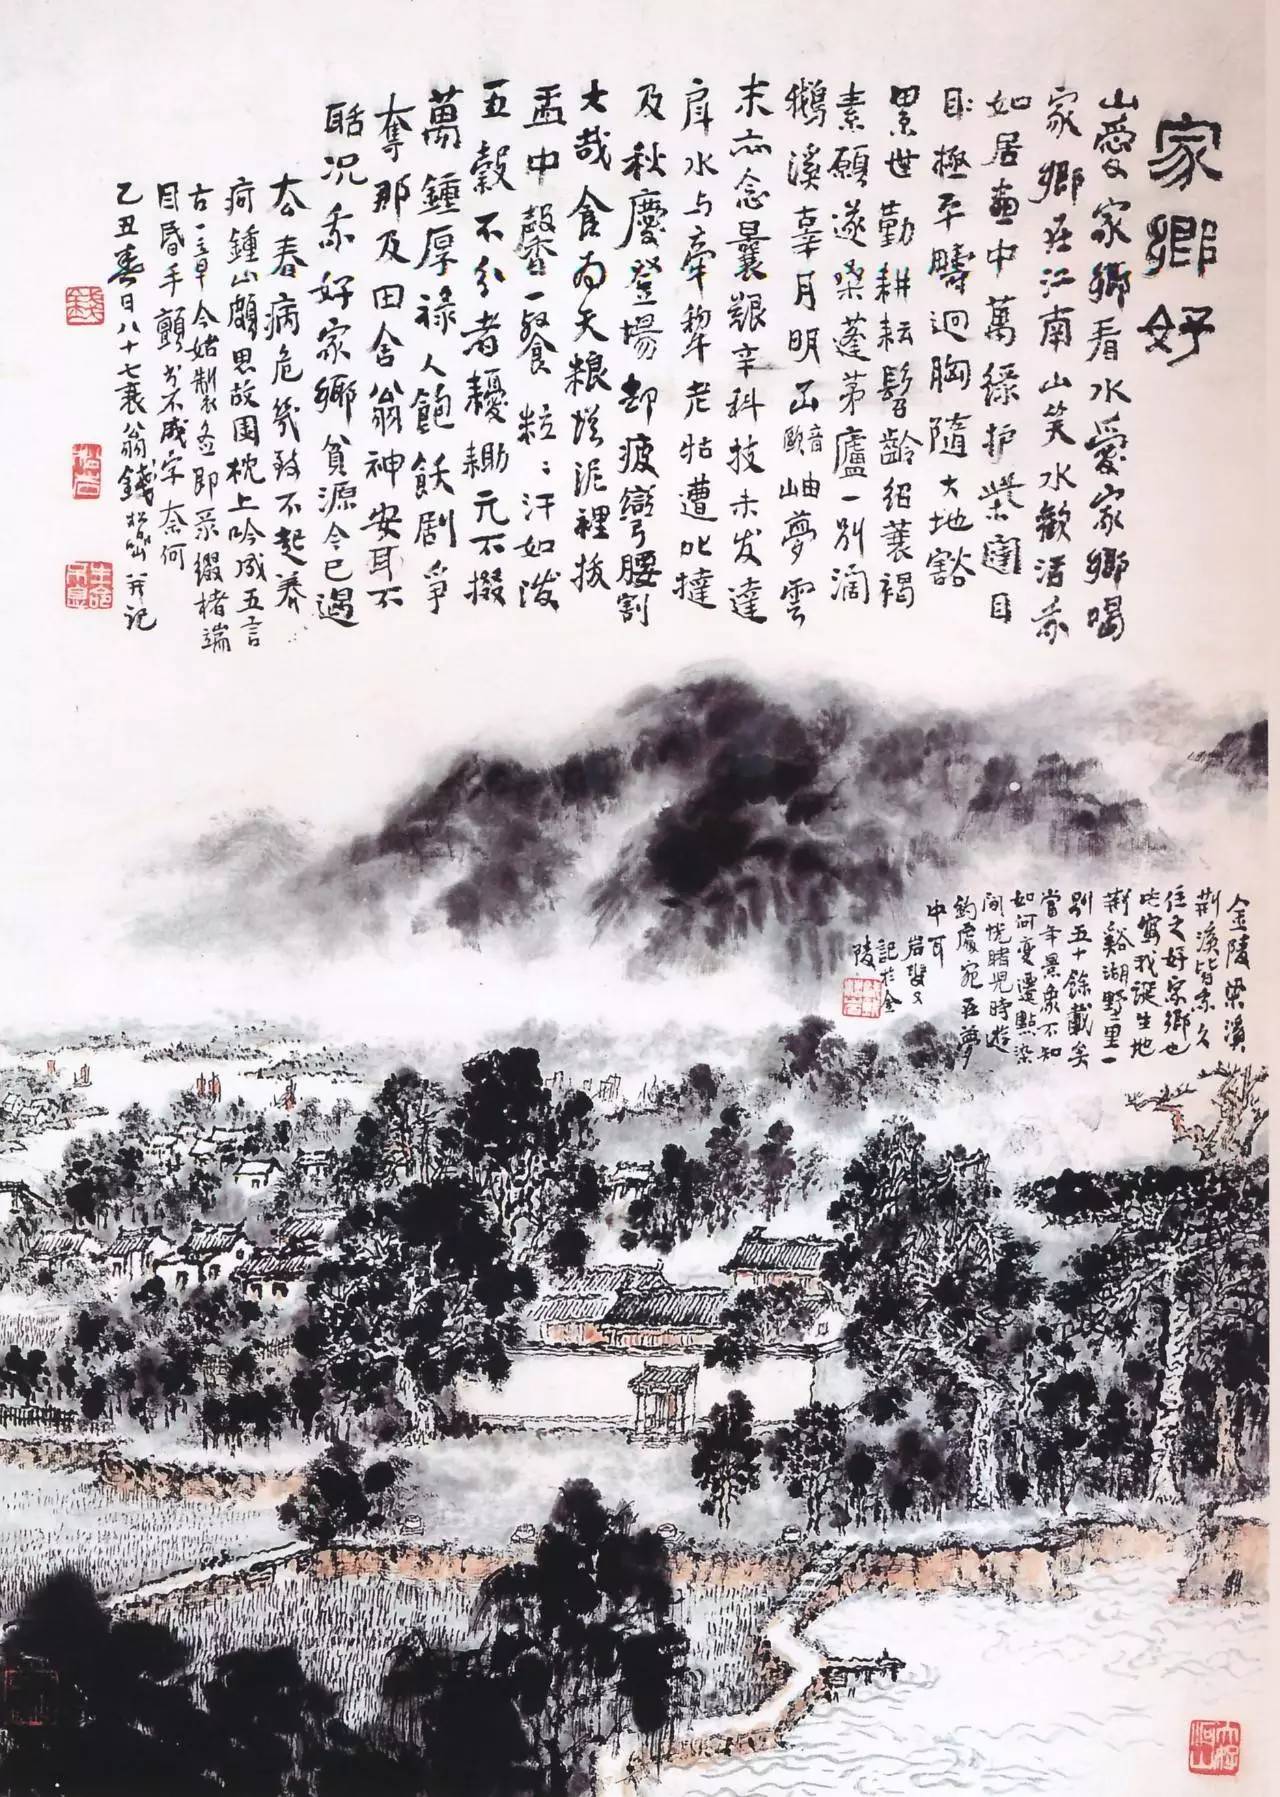 家鄉好
山愛家鄉看水愛家鄉喝
家鄉在江南山笑水歡活系
如居畫中萬綠护柴門目
耳極平疇迥胸隨大地豁
累世勤耕耘髫齡紹蓑褐
素願遂桑蓬茅廬一別闊
鵝溪辜月明凹音歐岫夢雲
末忘念曩艱辛科技未发達
戽水与牽犂老牯遭叱撻
及秋慶登場却疲彎腰割
大哉食為天粮從泥裡拔
盂中馨一餐粒〻汗如潑
五穀不分者耰耡元不掇
萬鍾厚祿人飽飫剧爭
奪那及田舍翁神安耳不
聒况系好家鄉貧源今已遏
去春病危幾致不起养
疴鍾山頗思故園枕上吟成五言
古一章今姑製為即录缀楮端
目昏手顫書不成字奈何
乙丑春日八十七叟翁錢松嵒并記
金陵梁溪
荆溪皆系久
住之好家鄉也
此寫我誕生地
荆谿湖野里一
別五十餘載矣
當年景象不知
如何变遷點染
间恍睹兒時遊
釣處宛在夢
中耳
岩叟又
記於金
陵